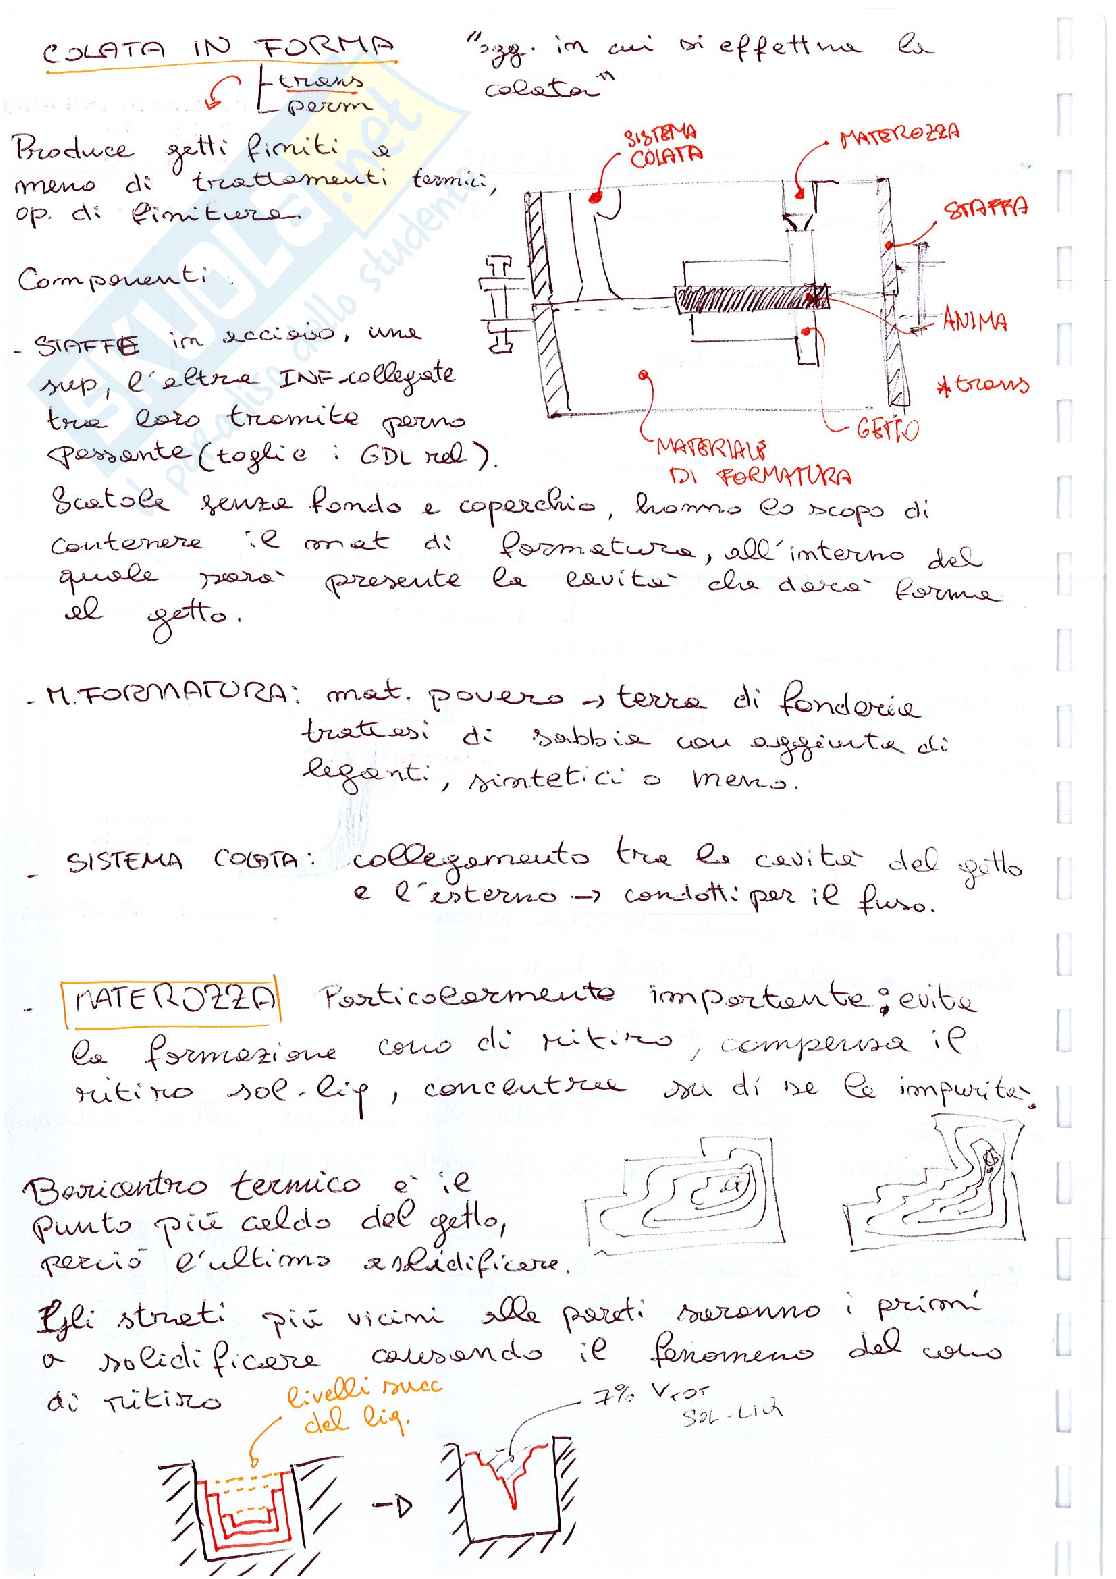 COLATA IN FORMA
"ogg. in cui si effettua la
colata"
trans
perm
Produce getti finiti a
meno di trattamenti termici,
op. di finitura.
SISTEMA
COLATA
MATEROZZA
STAFFA
ANIMA
*trans
GETTO
MATERIALE
DI FORMATURA
Componenti:
- STAFFE in acciaio, una
sup, l'altra INF collegate
tra loro tramite perno
passante (toglie i GDL rel).
Scatole senza fondo e coperchio, hanno lo scopo di
contenere il mat di formatura, all'interno del
quale sarà presente la cavità che darà forma
al getto.
- M. FORMATURA: mat. povero → terra di fonderia
trattasi di sabbia con aggiunta di
leganti, sintetici o meno.
- SISTEMA COLATA: collegamento tra la cavità del getto
e l'esterno → condotti per il fuso.
- MATEROZZA Particolarmente importante: evita
la formazione cono di ritiro, compensa il
ritiro sol-liq, concentra su di se le impurità.
Baricentro termico è il
punto più caldo del getto,
perciò l'ultimo a solidificare.
Gli strati più vicini alle pareti saranno i primi
a solidificare causando il fenomeno del cono
di ritiro
livelli succ
del liq.
7% VTOT
SOL-LIQ
SKUOLA.net
il paradiso dello studente